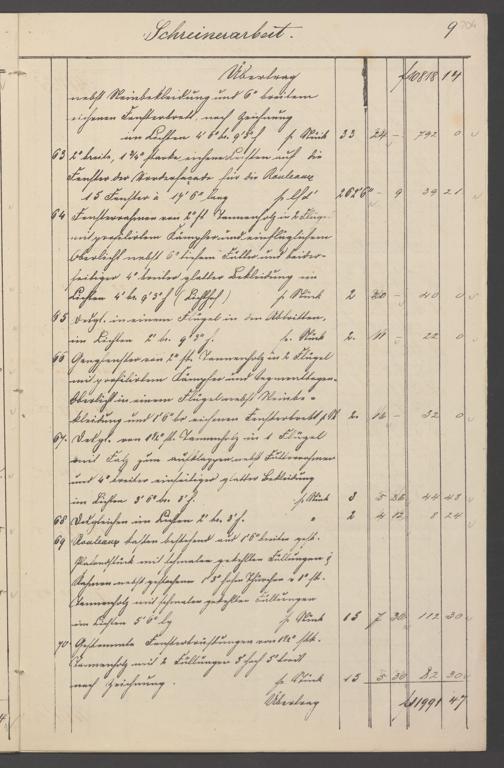 Schreinerarbeit. 9
Übertrag f 10818 14
nebst Steinbekleidung und 6" breitem
eichenen Fensterbrett, nach Zeichnung
im Lichten 4' 6" br. 9' 5" h p. Stück 33 24 – 792 0
63 2" breite, 1 3/4" starke eichene Leisten auf die
Fenster der Vorderfaçade für die Rouleaux
15 Fenster à 17' 6" lang p. lfd' 262' 6" – 9 39 21
64 Fensterrahmen von 2" st. Tannenholz in 2 Flügel
mit profilirtem Kämpfer und einflüglichem
Oberlicht nebst 6" tiefem Futter und beider-
seitiger 4" breiter glatter Bekleidung im
Lichten 4' br. 9' 5" h (Lichthof) p. Stück 2 20 – 40 0
65 Desgl. in einem Flügel in den Abtritten,
im Lichten 2' br. 9' 5" h. p. Stück 2 11 – 22 0
66 Gangfenster von 2" stk. Tannenholz in 2 Flügel
mit profilirtem Kämpfer und segmentbogen-
Oberlicht in einem Flügel nebst Steinbe-
kleidung und 1' 6" br. eichenen Fensterbrett p. St 2 16 – 32 0
67. Desgl. von 1 1/2" stk. Tannenholz in 1 Flügel
mit Falz zum aufklappen nebst Futterrahmen
und 4" breiter einseitiger glatter Bekleidung
im Lichten 3' 6" br. 3' h. p. Stück 8 5 36 44 48
68 Desgleichen im Lichten 2' br. 3' h. " 2 4 12 8 24
69 Rouleaux kasten bestehend aus 1' 5" breiten gest.
Plafondstück mit schmalen gekehlten Füllungen &
Rahmen nebst gestemmtem 1' 3" hohen Thürchen v. 1" stk.
Tannenholz mit schmalen gekehlten Füllungen
im Lichten 5' 6" lg p. Stück 15 7 30 112 30
70 Gestemmte Fensterbrüstungen von 1 1/2" stk.
Tannenholz mit 2 Füllungen 3' hoch 5' breit
nach Zeichnung. p. Stück 15 5 30 82 30
Übertrag f 11991 47